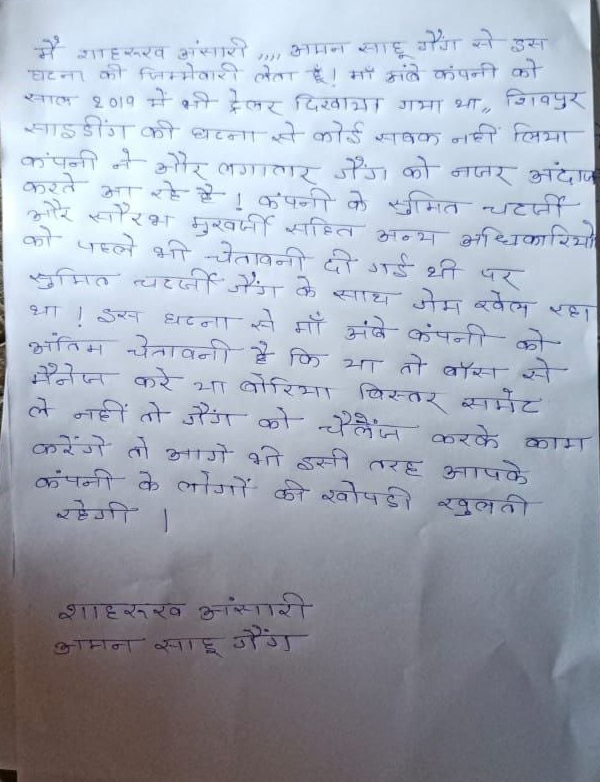 मैं शाहरूख अंसारी ,,,, अमन साहू गैंग से इस
घटना की जिम्मेवारी लेता हूँ! माँ अंबे कंपनी को
साल 2019 में भी ट्रेलर दिखाया गया था,, शिवपुर
साइडींग की घटना से कोई सबक नहीं लिया
कंपनी ने और लगातार गैंग को नजर अंदाज
करते आ रहे है! कंपनी के सुमित चटर्जी
और सौरभ मुखर्जी सहित अन्य अधिकारियो
को पहले भी चेतावनी दी गई थी पर
सुमित चटर्जी गैंग के साथ गेम खेल रहा
था! इस घटना से माँ अंबे कंपनी को
अंतिम चेतावनी है कि या तो बॉस से
मैनेज करे या बोरिया बिस्तर समेट
ले नहीं तो गैंग को चैलेंज करके काम
करेंगे तो आगे भी इसी तरह आपके
कंपनी के लोगों की खोपडी खुलती
रहेगी ।
शाहरूख अंसारी
अमन साहू गैंग